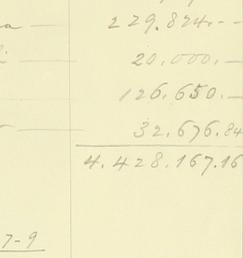 229.824.--
20.000.—
126.650.—
32.676.84
4.428.167.16
7-9